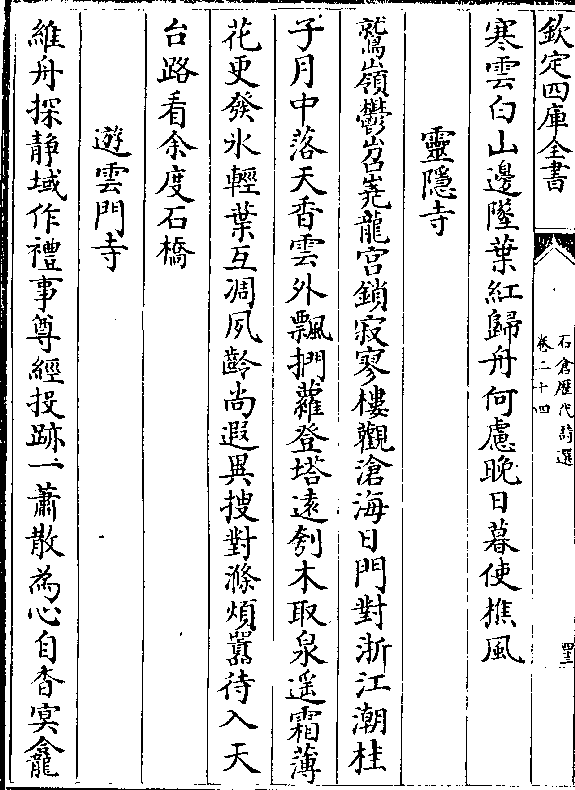 欽定四庫全書
石倉歴代詩選
卷二十四
寒雲白山邊墜葉紅歸舟何慮晚日暮使樵風
靈隱寺
鷲嶺鬱岧嶤龍宫鎖寂寥樓觀滄海日門對浙江潮桂
子月中落天香雲外飄捫蘿登塔遠刳木取泉遥霜薄
花更發氷輕葉互凋夙齡尚遐異搜對滌煩囂待入天
台路看余度石橋
遊雲門寺
維舟探静域作禮事尊經投跡一蕭散為心自杳冥龕